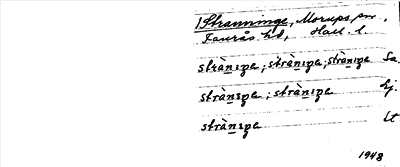 Stranninge, Morups sn,
Faurås hd, Hall. l.
stràni̠ŋe; stràni̠ŋe; stràni̠ŋe Sa.
stràni̠ŋe; stràni̠ŋe Hj.
stràni̠ŋe Lt
1948